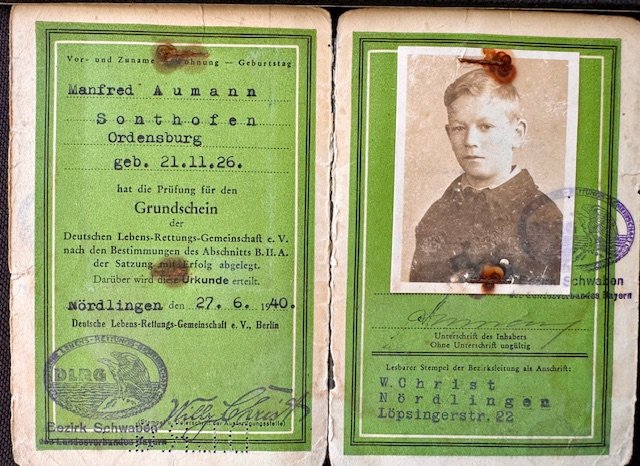 Vor- und Zuname — Wohnung — Geburtstag
Manfred Aumann
Sonthofen
Ordensburg
geb. 21.11.26.
hat die Prüfung für den
Grundschein
der
Deutschen Lebens-Rettungs-Gemeinschaft e. V.
nach den Bestimmungen des Abschnitts B.II.A.
der Satzung mit Erfolg abgelegt.
Darüber wird diese Urkunde erteilt.
Nördlingen den 27. 6. 1940.
Deutsche Lebens-Rettungs-Gemeinschaft e. V., Berlin
LEBENS-RETTUNGS-GEMEINSCHAFT
DLRG
Bezirk Schwaben
des Landesverbandes Bayern
Willy Christ
(Unterschrift der Ausfertigungsstelle)
Bezirk Schwaben
des Landesverbandes Bayern
Unterschrift des Inhabers
Ohne Unterschrift ungültig
Lesbarer Stempel der Bezirksleitung als Anschrift:
W. Christ
Nördlingen
Löpsingerstr. 22